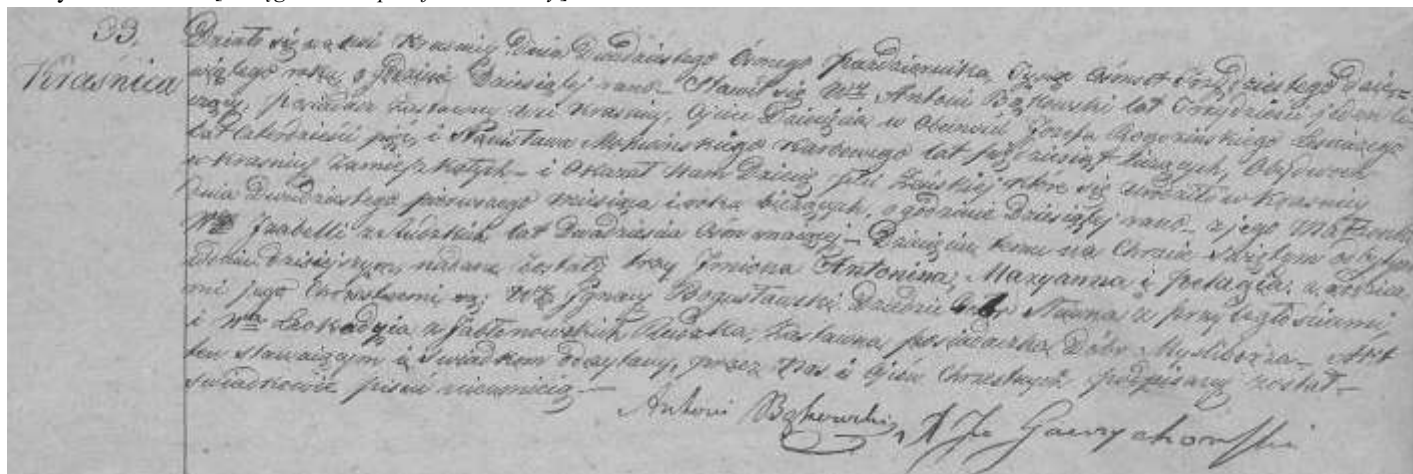 33.
Kraśnica
Działo się we wsi Krasnicy Dnia Dwudziestego Ósmego Października Tysiąc Ósmset Trzydziestego Dzie=
wiątego roku, o godzinie Dziesiątej rano_ Stawił się Wny Antoni Bąkowski lat Trzydzieści jeden li=
czący, posiadacz zastawny wsi Krasnicy, Ojciec Dziecięcia w obecności Józefa Rogozińskiego Leśniczego
lat czterdzieści i Stanisława karbowego lat pięćdziesiąt liczących, Obydwóch
w Krasnicy zamieszkałych_ i okazał Nam Dziecię płci żeńskiej które się urodziło w Krasnicy
Dnia Dwudziestego pierwszego miesiąca i roku bieżących, o godzinie Dziesiątej rano_ z jego Małżonki
Wny Izabelli z lat Dwadzieścia Ósm mającej_ Dziecięciu temu na Chrzcie Świętym odbytym
w dniu dzisiejszym, nadane zostały trzy Imiona Antonina, Maryanna i Pelagia; a rodzica=
mi jego Chrzestnemi są: Wny Ignacy Bogusławski Dziedzic Dóbr z przyległościami,
i Wna Leokadyja z Jabłonowskich Rudzka, zastawna posiadaczka Dóbr Myśliborza_ Akt
ten stawaiącym i Świadkom odczytany, przez Nas i Ojców Chrzestnych podpisany został_
Świadkowie pisać nieumieią_
Antoni Bąkowski, Gawrychowski